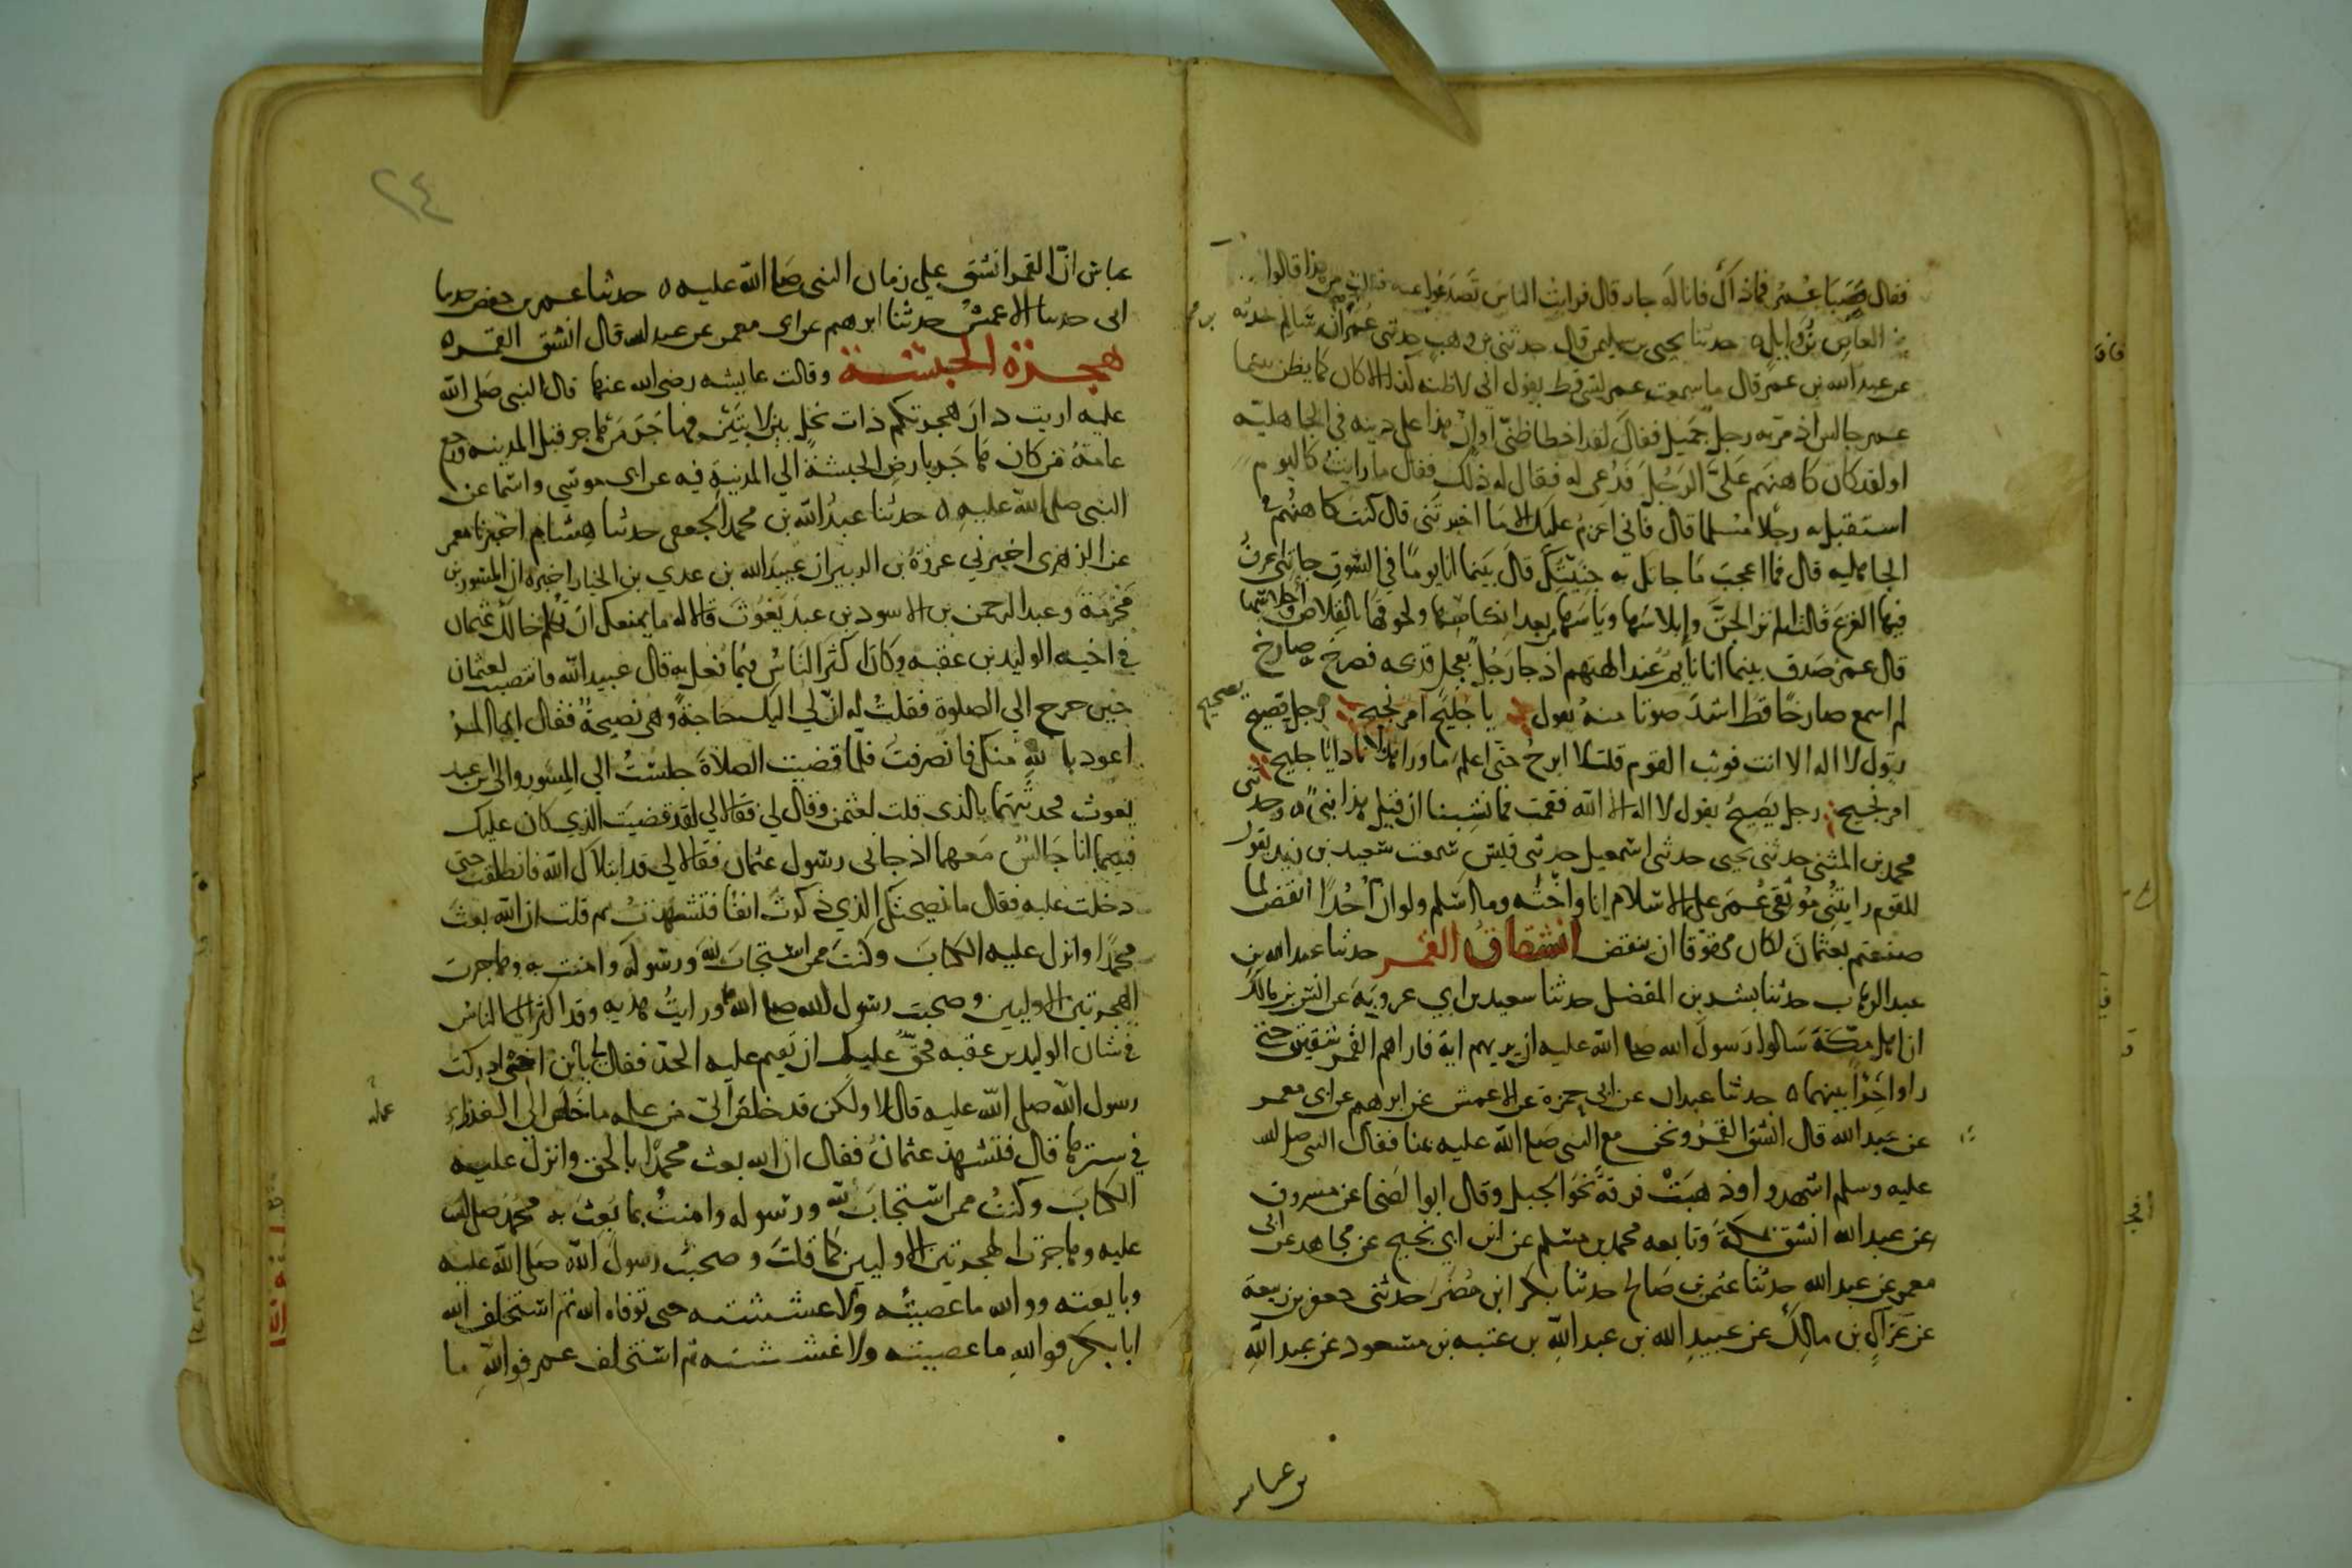 فقال صبا عمر فما ذاك فانا له جار قال فرايت الناس تصدعوا عنه فقلت من هذا قالوا
العاص بن وايل ه حدثنا يحيى بن سليمن قال حدثني بن وهب حدثني عمر ان سالم حدثه
عن عبد الله بن عمر قال ما سمعت عمر لشي قط يقول اني لاظنه كذا الا كان كما يظن بينما
عمر جالس اذ مر به رجل جميل فقال لقد اخطا ظني او ان هذا على دينه في الجاهلية
او لقد كان كاهنهم علي الرجل فدعي له فقال له ذلك فقال ما رايت كاليوم
استقبل به رجلا مسلما قال فاني اعزم عليك الا ما اخبرتني قال كنت كاهنهم في
الجاهليه قال فما اعجب ما جاتك به جنيتك قال بينما انا يوما في السوق جاتني اعرف
فيها الفزع قالت الم تر الجن وابلاسها وياسها من بعد انكاسها ولحوقها بالقلاص واحلاسها
قال عمر صدق بينما انا نايم عند الهتهم اذ جا رجل بعجل فذبحه فصرخ به صارخ
لم اسمع صارخا قط اشد صوتا منه يقول يا جليح امر نجيح رجل فصيح
يقول لا اله الا انت فوثب القوم قلت لا ابرح حتى اعلم ما ورا هذا ثم نادا يا جليح
امر نجيح رجل يصيح يقول لا اله الا الله فقمت فما نشبنا ان قيل هذا نبي ه وحدثني
محمد بن المثنى حدثني يحيى حدثني اسمعيل حدثني قيس سمعت سعيد بن زيد يقول
للقوم رايتني موثقي عمر على الاسلام انا واخته وما اسلم ولو ان احدا انقض لما
صنعتم بعثمان لكان محقوقا ان ينقض انشقاق القمر حدثنا عبد الله بن
عبد الوهاب حدثنا بشر بن المفضل حدثنا سعيد بن ابي عروبة عن انس بن مالك
ان اهل مكة سالوا رسول الله صلى الله عليه ان يريهم اية فاراهم القمر شقتين حتى
راوا حرا بينهما ه حدثنا عبدان عن ابي حمزة عن الاعمش عن ابرهيم عن ابي معمر
عن عبد الله قال انشق القمر ونحن مع النبي صلى الله عليه بمنا فقال النبي صلى الله
عليه وسلم اشهدوا وذهبت فرقة نحو الجبل وقال ابو الضحى عن مسروق
عن عبد الله انشق بمكة وتابعه محمد بن مسلم عن ابن ابي نجيح عن مجاهد عن ابي
معمر عن عبد الله حدثنا عثمن بن صالح حدثنا بكر ابن مضر حدثني جعفر بن ربيعة
عن عراك بن مالك عن عبيد الله بن عبد الله بن عتبه بن مسعود عن عبد الله
بن عباس
٢٤
عباس ان القمر انشق علي زمان النبي صلى الله عليه ه حدثنا عمر بن حفص حدثنا
ابي حدثنا الاعمش حدثنا ابرهيم عن ابي معمر عن عبد الله قال انشق القمر ه
هجرة الحبشة وقالت عايشه رضي الله عنها قال النبي صلى الله
عليه اريت دار هجرتكم ذات نخل بين لابتين فهاجر من هاجر قبل المدينه ورجع
عامة من كان هاجر بارض الحبشة الي المدينة فيه عن ابي موسي واسما عن
النبي صلى الله عليه ه حدثنا عبد الله بن محمد الجعفي حدثنا هشام اخبرنا معمر
عن الزهري اخبرني عروة بن الزبير ان عبيد الله بن عدي بن الخيار اخبره ان المسور بن
مخرمة وعبد الرحمن بن الاسود بن عبد يغوث قالا له ما يمنعك ان تكلم خالك عثمان
في اخيه الوليد بن عقبه وكان اكثر الناس فيما فعل به قال عبيد الله فانتصبت لعثمان
حين خرج الي الصلوة فقلت له ان لي اليك حاجة وهي نصيحة فقال ايها المر
اعوذ بالله منك فانصرفت فلما قضيت الصلاة جلست الي المسور والى ابن عبد
يغوث فحدثتهما بالذي قلت لعثمن وقال لي فقالا لي لقد قضيت الذي كان عليك
فبينما انا جالس معهما اذ جاني رسول عثمان فقالا لي قد ابتلاك الله فانطلقت حتى
دخلت عليه فقال ما نصيحتك الذي ذكرت انفا فتشهدت ثم قلت ان الله بعث
محمدا وانزل عليه الكتاب وكنت ممن استجاب لله ورسوله وامنت به وهاجرت
الهجرتين الاوليين وصحبت رسول الله صلى الله ورايت هديه وقد اكثر الناس
في شان الوليد بن عقبه فحق عليك ان تقيم عليه الحد فقال لي يا بن اختي ادركت
رسول الله صلى الله عليه قال لا ولكن قد خلص الي من علمه ما خلص الى العذراء
في سترها قال فتشهد عثمان فقال ان الله بعث محمدا بالحق وانزل عليه
الكتاب وكنت ممن استجاب لله ورسوله وامنت بما بعث به محمد صلى الله
عليه وهاجرت الهجرتين الاوليين كما قلت وصحبت رسول الله صلى الله عليه
وبايعته ووالله ما عصيته ولا غششته حتى توفاه الله ثم استخلف الله
ابا بكر فوالله ما عصيته ولا غششته ثم استخلف عمر فوالله ما